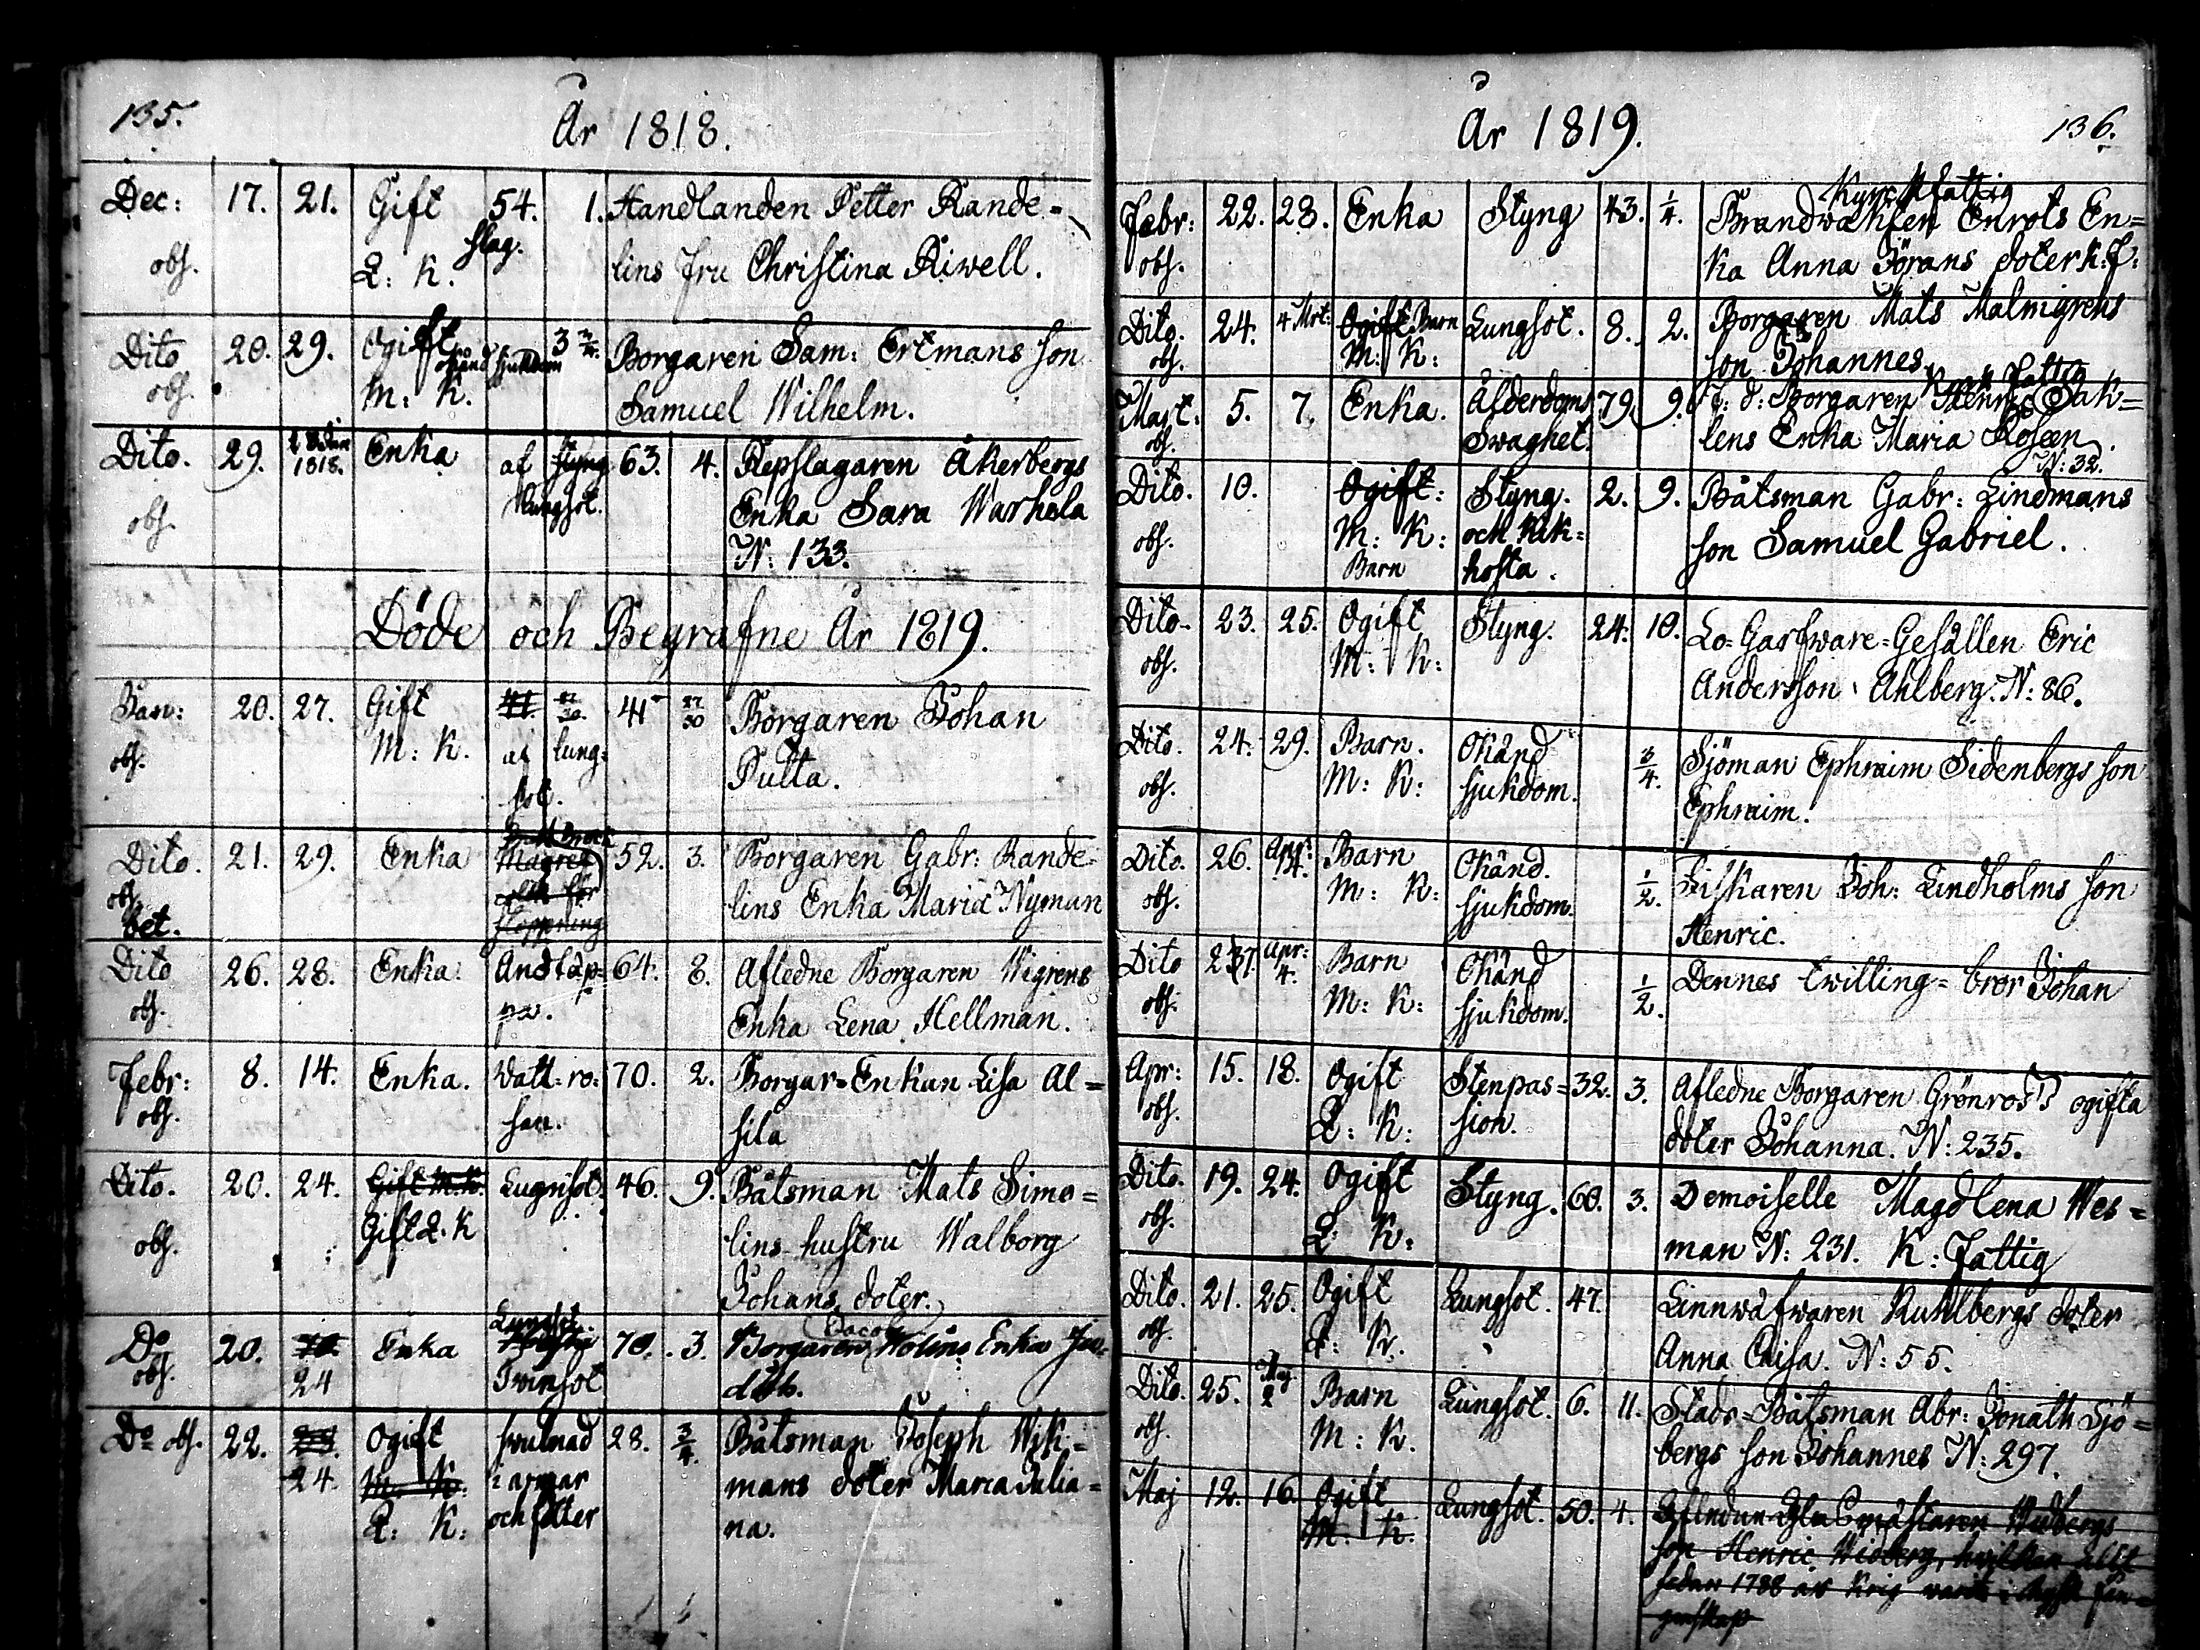 135.
År 1818.
Dec: 17. 21. Gift 54. 1. Handlanden Petter Rande=
obs. Q: K. slag. lins fru Christina Riwell.
Dito 20. 29. Ogift okänd sjukdom 3 3/4. Borgaren Sam: Ertmans son
obs. M: K. Samuel Wilhelm.
Dito. 29. 1818. Enka af styng 63. 4. Repslagaren Åkerbergs
obs. lungsot. Enka Sara Warhela
N: 133.
Döde och Begrafne År 1819.
Jan: 20. 27. Gift 41 27/30 Borgaren Johan
obs. M: K. af lung= Pulta.
sot.
Dito. 21. 29. Enka 52. 3. Borgaren Gabr: Rande=
obs. lins Enka Maria Nyman
bet.
Dito 26. 28. Enka. Andtäp= 64. 8. Afledne Borgaren Wigrens
obs. pa. Enka Lena Hellman.
Febr: 8. 14. Enka. Watt=ro= 70. 2. Borgar=Enkan Lisa Al=
obs. sen. sila
Dito. 20. 24. Gift M. K. Lugnsot. 46. 9. Båtsman Mats Simo=
obs. Gift Q. K lins hustru Walborg
Johans doter.
Do 20. Enka Lungsot. 70. 3. Borgaren Jacob Holins Enka Ju=
obs. 24 Twinsot dith.
Do obs. 22. Ogift swulnad 28. 3/4. Båtsman Joseph Wik=
24. M: K. i armar mans doter Maria Julia=
Q: K: och fötter na.
År 1819.
136.
Kyrk fattig
Febr: 22. 28. Enka Styng 43. 1/4. Brandwakten Enrots En=
obs. ka Anna Jörans doter K: f:
Dito. 24. 4 Mrt: Ogift Barn Lungsot. 8. 2. Borgaren Mats Malmgrens
obs. M: K: son Johannes.
fattig
Mart: 5. 7. Enka. Ålderdoms 79. 9. F: d: Borgaren Henric Sak=
obs. Swaghet. lens Enka Maria Roseen.
N: 32.
Dito. 10. Ogift: Styng. 2. 9. Båtsman Gabr: Lindmans
obs. M: K: och Kik= son Samuel Gabriel.
Barn hosta.
Dito. 23. 25. Ogift Styng. 24. 10. Lo=Garfware=Gesällen Eric
obs. M: K: Andersson Ahlberg. N: 86.
Dito. 24. 29. Barn. Okänd 3/4. Sjöman Ephraim Sidenbergs son
obs. M: K: sjukdom. Ephraim.
Dito. 26. Apr: 4. Barn Okänd. 1/2. Fiskaren Joh: Lindholms son
obs. M: K: sjukdom. Henric.
Dito 27. Apr: 4. Barn Okänd 1/2. Dennes twilling=bror Johan
obs. M: K: sjukdom.
Apr: 15. 18. Ogift Stenpas= 32. 3. Afledne Borgaren Grönroos ogifta
obs. Q: K: sion. doter Johanna. N: 235.
Dito. 19. 24. Ogift Styng. 60. 3. Demoiselle Magdlena Wes=
obs. Q: K: man N: 231. K: Fattig
Dito. 21. 25. Ogift Lungsot. 47. Linnwäfwaren Kuhlbergs doter
obs. Q: K. Anna Caisa. N: 55.
Dito. 25. Maj 2 Barn Lungsot. 6. 11. Stads=Båtsman Abr: Jonath Sjö=
obs. M: K. bergs son Johannes N: 297.
Maj 12. 16 Ogift Lungsot. 50. 4. Afledne Glasmästaren Widbergs
M. K. son Henric Widberg, hvilken alt
sedan 1788 års Krig warit i Rysk fån=
genskap